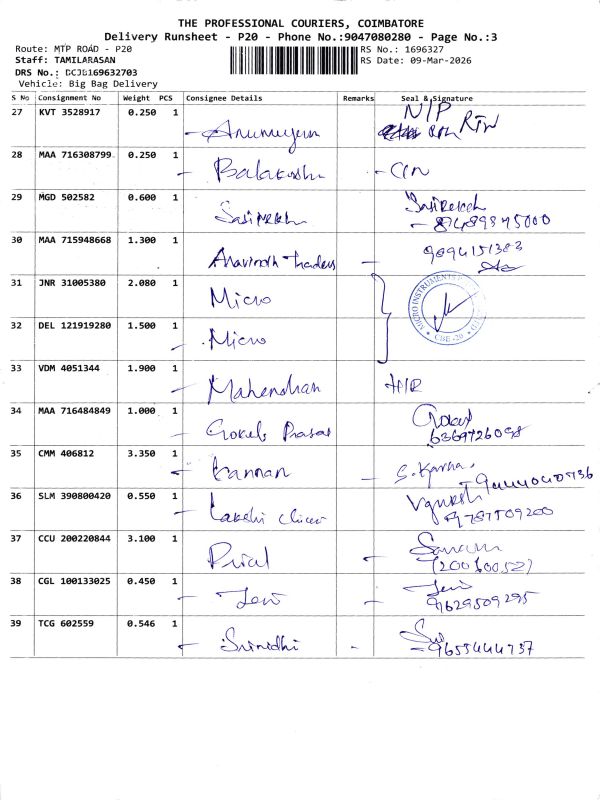 THE PROFESSIONAL COURIERS, COIMBATORE
Delivery Runsheet - P20 - Phone No.:9047080280 - Page No.:3
Route: MTP ROAD - P20
RS No.: 1696327
Staff: TAMILARASAN
RS Date: 09-Mar-2026
DRS No.: DCJB169632703
Vehicle: Big Bag Delivery
S No Consignment No Weight PCS Consignee Details Remarks Seal & Signature
27 KVT 3528917 0.250 1 N/P
28 MAA 716308799 0.250 1
29 MGD 502582 0.600 1 Sasirekah
30 MAA 715948668 1.300 1 Aravindh Traders 9094151383
31 JNR 31005380 2.080 1 Micro
MICRO INSTRUMENTS
CBE-20
32 DEL 121919280 1.500 1 Micro
33 VDM 4051344 1.900 1 Mahendhan
34 MAA 716484849 1.000 1 Gokul Prasad
6369726098
35 CMM 406812 3.350 1 Kannan
36 SLM 390800420 0.550 1
37 CCU 200220844 3.100 1
38 CGL 100133025 0.450 1 Jeni Jeni
9629509295
39 TCG 602559 0.546 1 Srinidhi
9655444737